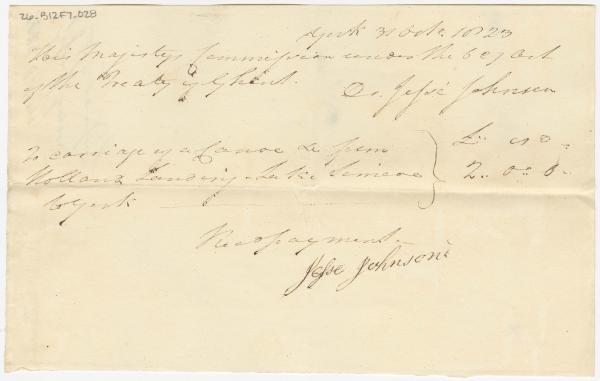 26-B12F7-028
York 31 Octr 1823
His Majestys Commission under the 6 & 7 Art
of the Treaty of Ghent.
Dr. Jesse Johnson
To carriage of a Canoe &c from
Holland Landing Lake Simcoe
to York
2.. 0.. 0..
Recd payment
Jesse Johnson